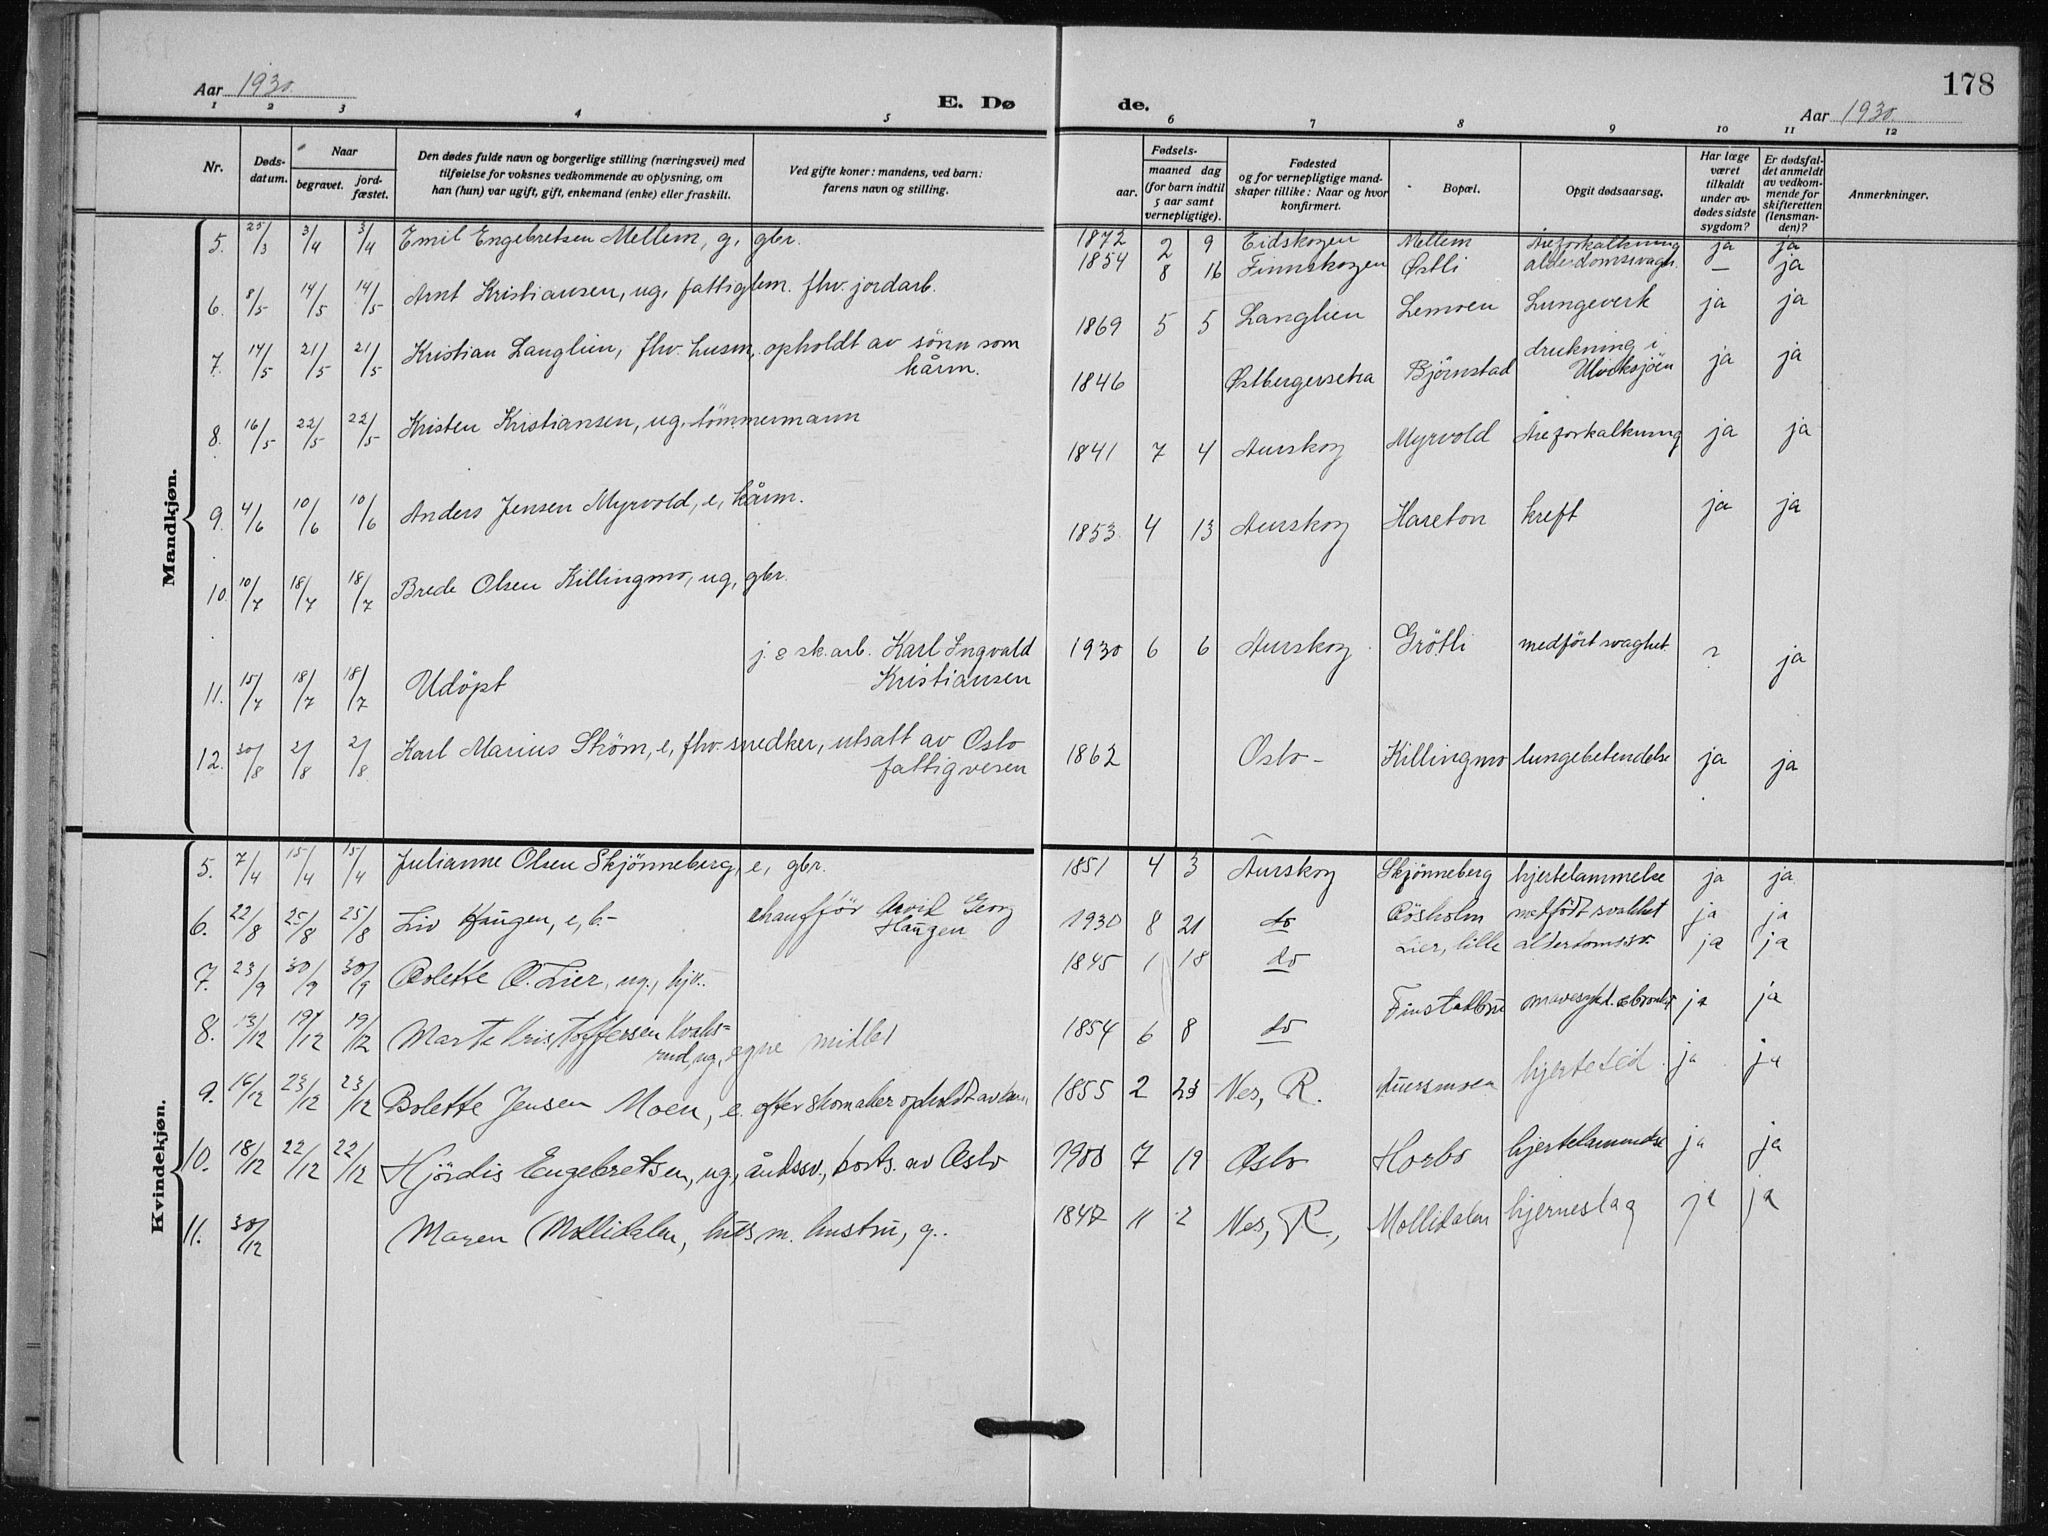 178
Aar 1930.
E. Dø de.
Aar 1930.
1 2 3 4 5 6 7 8 9 10 11 12
Nr.
Døds-datum.
Naar
begravet.
jord-fæstet.
Den dødes fulde navn og borgerlige stilling (næringsvei) med
tilføielse for voksnes vedkommende av oplysning, om
han (hun) var ugift, gift, enkemand (enke) eller fraskilt.
Ved gifte koner: mandens, ved barn:
farens navn og stilling.
Fødsels-
aar.
maaned dag
(for barn indtil
5 aar samt
vernepligtige).
Fødested
og for vernepligtige mand-
skaper tillike: Naar og hvor
konfirmert.
Bopæl.
Opgit dødsaarsag.
Har læge
været
tilkaldt
under av-
dødes sidste
sygdom?
Er dødsfal-
det anmeldt
av vedkom-
mende for
skifteretten
(lensman-
den)?
Anmerkninger.
Mandkjøn.
5. 25/3 3/4 3/4 Emil Engebretsen Mellem, g, gbr. 1872 2 9 Eidskogen Mellem Åreforkalkning ja ja
6. 8/5 14/5 14/5 Arnt Kristiansen, ug, fattiglem. fhv. jordarb. 1854 8 16 Finnskogen Østli alderdomssvagh. — ja
7. 14/5 21/5 21/5 Kristian Langlien, fhv. husm, opholdt av sönn som 1869 5 5 Langlien Lemoen Lungeverk ja ja
kårm.
8. 16/5 22/5 22/5 Kristen Kristiansen, ug, tömmermann 1846 Østbergersetra Björnstad drukning i ja ja
Ulviksjöen
9. 4/6 10/6 10/6 Anders Jensen Myrvold, e, kårm. 1841 7 4 Aurskog Myrvold Åreforkalkning ja ja
10. 10/7 18/7 18/7 Brede Olsen Killingmo, ug, gbr. 1853 4 13 Aurskog Hareton kreft ja ja
11. 15/7 18/7 18/7 Udöpt j. & sk.arb. Karl Ingvald 1930 6 6 Aurskog Grötli medfört svaghet ? ja
Kristiansen
12. 30/8 2/8 2/8 Karl Marius Ström, e, fhv. snedker, utsatt av Oslo 1862 Oslo - Killingmo lungebetendelse ja ja
fattigvesen
Kvindekjøn.
5. 7/4 15/4 15/4 Julianne Olsen Skjönneberg, e, gbr. 1851 4 3 Aurskog Skjönneberg hjertelammelse ja ja
6. 22/8 25/8 25/8 Liv Haugen, e, b.- chaufför Arvid Georg 1930 8 21 do Rösholm medfödt svakhet ja ja
Haugen
7. 23/9 30/9 30/9 Olette O. Lier, ug., 1845 1 18 do Lier, lille alderdomssv. ja ja
8. 13/12 19/12 19/12 Marte Kristoffersen Kvaks= 1854 6 8 do Finstadbru ja ja
rud, ug, egne midler
9. 16/12 23/12 23/12 Bolette Jensen Moen, e. efter skomaker opholdt av 1855 2 23 Nes, R. Aursmoen hjertefeil ja ja
10. 18/12 22/12 22/12 Hjördis Engebretsen, ug., åndssv., borts. av Oslo 1900 7 19 Oslo Horbo hjertelammelse ja ja
11. 30/12 Maren Mollidalen, hus m. hustru, g.. 1847 11 2 Nes, R., Mollidalen hjerneslag ja ja